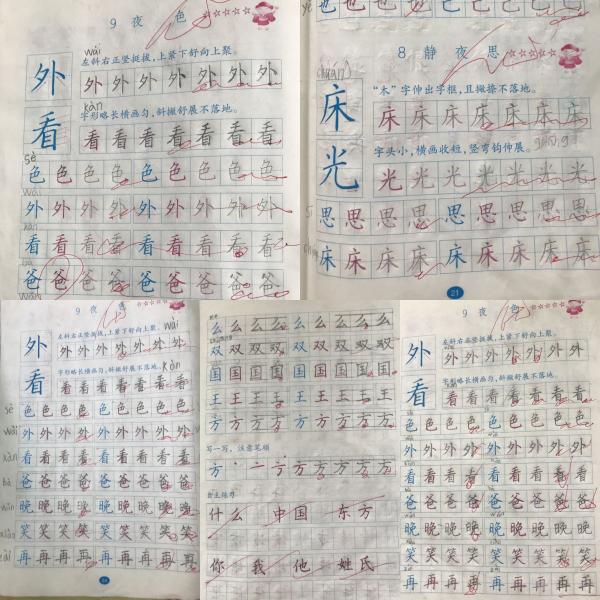 9 夜 色
wài
左斜右正竖挺拔,上紧下舒向上聚。
外
外 外 外 外 外 外 外
kàn
字形略长横画匀,斜撇舒展不落地。
看
看 看 看 看 看 看 看
sè
色 色 色 色 色 色 色 色
wài
外 外 外 外 外 外 外 外
看 看 看 看 看 看 看 看
爸 爸 爸 爸 爸 爸 爸 爸
8 静 夜 思
“木”字伸出字框,且撇捺不落地。
床
床 床 床 床 床 床 床
字头小,横画收短,竖弯钩伸展。
光
光 光 光 光 光 光 光
思 思 思 思 思 思 思 思
床 床 床 床 床 床 床 床
21
9 夜 色
左斜右正竖挺拔,上紧下舒向上聚。 wài
外
外 外 外 外 外 外 外
字形略长横画匀,斜撇舒展不落地。 kàn
看
看 看 看 看 看 看 看
sè 色 色 色 色 色 色 色 色
wài 外 外 外 外 外 外 外 外
kàn 看 看 看 看 看 看 看 看
bà 爸 爸 爸 爸 爸 爸 爸 爸
wǎn 晚 晚 晚 晚 晚 晚 晚 晚
xiào 笑 笑 笑 笑 笑 笑 笑 笑
zài 再 再 再 再 再 再 再 再
么 么 么 么 么 么 么 么
双 双 双 双 双 双 双 双
国 国 国 国 国 国 国 国
王 王 王 王 王 王 王 王
方 方 方 方 方 方 方 方
写一写,注意笔顺
什么 中国 东方
你 我 他 姓氏
9 夜 色
左斜右正竖挺拔,上紧下舒向上聚。
外
外 外 外 外 外 外 外
字形略长横画匀,斜撇舒展不落地。
看
看 看 看 看 看 看 看
色 色 色 色 色 色 色 色
外 外 外 外 外 外 外 外
看 看 看 看 看 看 看 看
爸 爸 爸 爸 爸 爸 爸 爸
晚 晚 晚 晚 晚 晚 晚 晚
笑 笑 笑 笑 笑 笑 笑 笑
再 再 再 再 再 再 再 再